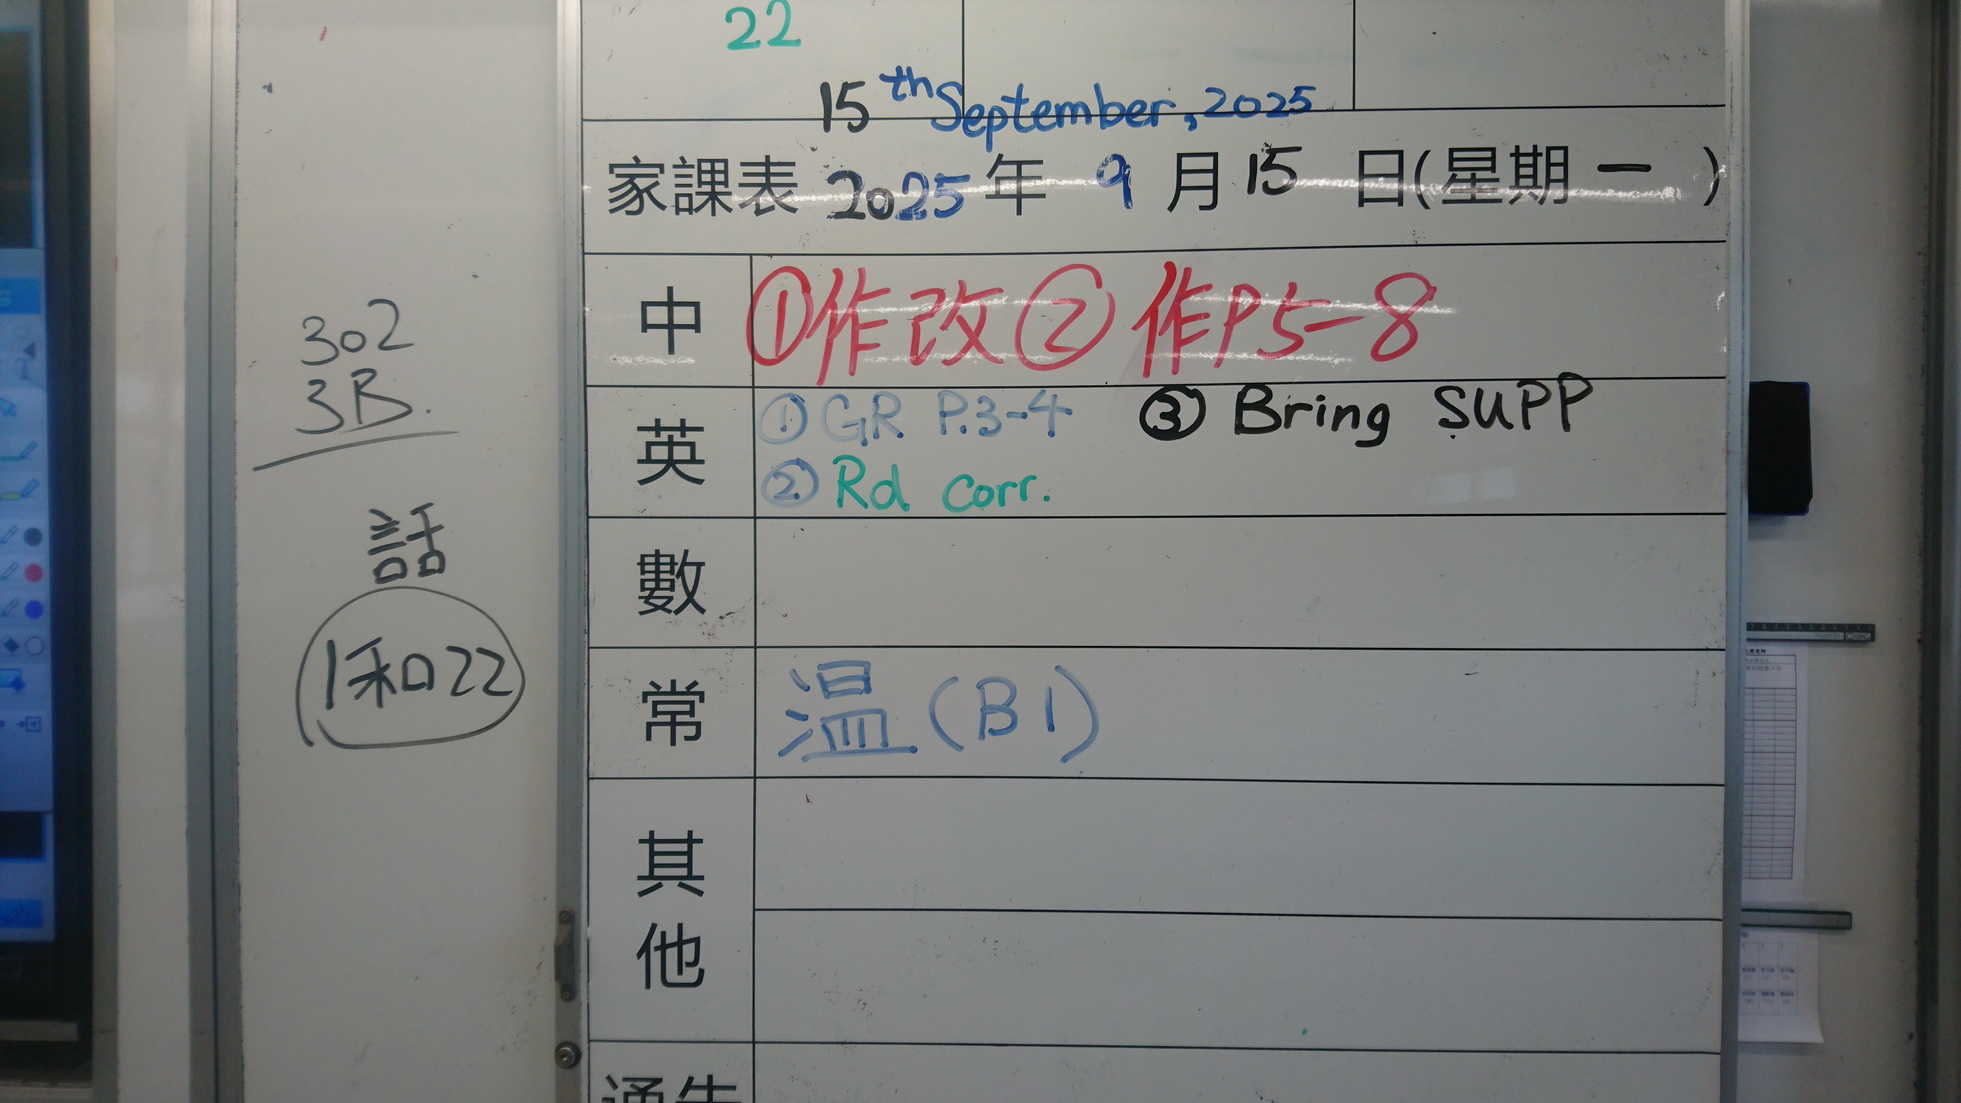 22
15th September, 2025
家課表 2025年 9月15日(星期一)
中 ①作改②作P5-8
英 ①GR P.3-4 ③Bring SUPP
②Rd corr.
數
常 温(B1)
其他
通告
302
3B.
話
1和22